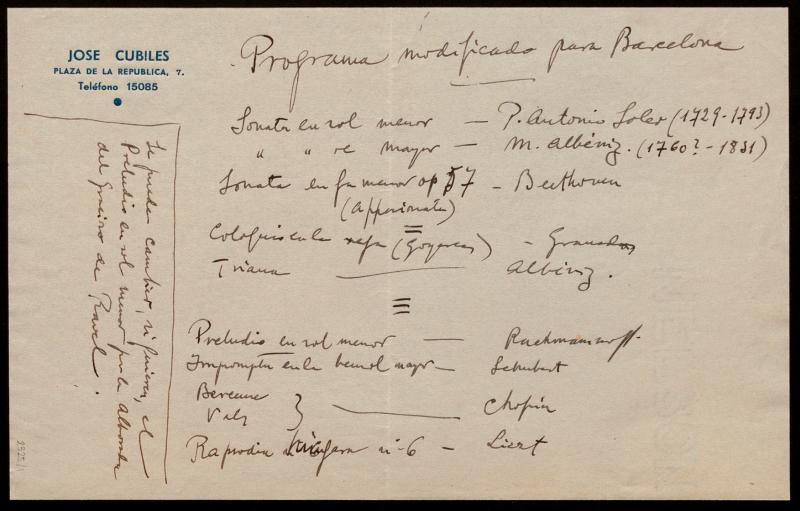 JOSE CUBILES
PLAZA DE LA REPUBLICA, 7.
Teléfono 15085
Programa modificado para Barcelona
Sonata en sol menor — P. Antonio Soler (1729-1793)
" " re mayor — M. Albéniz. (1760?-1831)
Sonata en fa menor op 57 — Beethoven
(Appasionata)
Coloquio en la reja (Goyescas) - Granados
Triana — Albéniz.
Preludio en sol menor — Rachmaninoff.
Impromptu en la bemol mayor — Schubert
Berceuse
Vals } — Chopin
Rapsodia húngara nº 6 — Liszt
Se puede cambiar, si quieren, el
Preludio en sol menor por la Alborada
del Gracioso de Ravel.